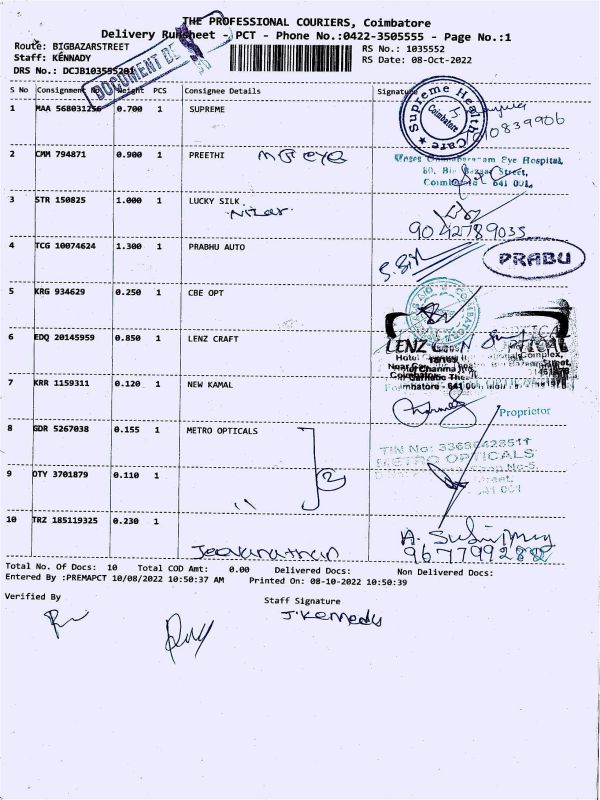 THE PROFESSIONAL COURIERS, Coimbatore
Delivery Runsheet - PCT - Phone No.:0422-3505555 - Page No.:1
Route: BIGBAZARSTREET
RS No.: 1035552
Staff: KENNADY
RS Date: 08-Oct-2022
DRS No.: DCJB103555201
DOCUMENT
S No Consignment No Weight PCS Consignee Details Signature
1 MAA 568031256 0.700 1 SUPREME
Supreme Health Care
Coimbatore
2 CMM 794871 0.900 1 PREETHI
Eye Hospital,
Street,
641 001.
3 STR 150825 1.000 1 LUCKY SILK
Nizar
9042789035
4 TCG 10074624 1.300 1 PRABHU AUTO
PRABU
5 KRG 934629 0.250 1 CBE OPT
6 EDQ 20145959 0.850 1 LENZ CRAFT
LENZ
7 KRR 1159311 0.120 1 NEW KAMAL
Proprietor
8 GDR 5267038 0.155 1 METRO OPTICALS
TIN No:
METRO OPTICALS
9 OTY 3701879 0.110 1 " 2
10 TRZ 185119325 0.230 1
Jeevanathan
Total No. Of Docs: 10 Total COD Amt: 0.00 Delivered Docs: Non Delivered Docs:
Entered By :PREMAPCT 10/08/2022 10:50:37 AM Printed On: 08-10-2022 10:50:39
Verified By
Staff Signature
J.Kennedy